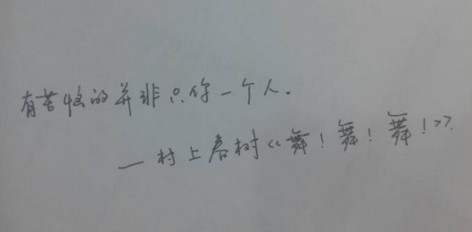 有苦恼的并非只你一个人。
—村上春树《舞！舞！舞！》